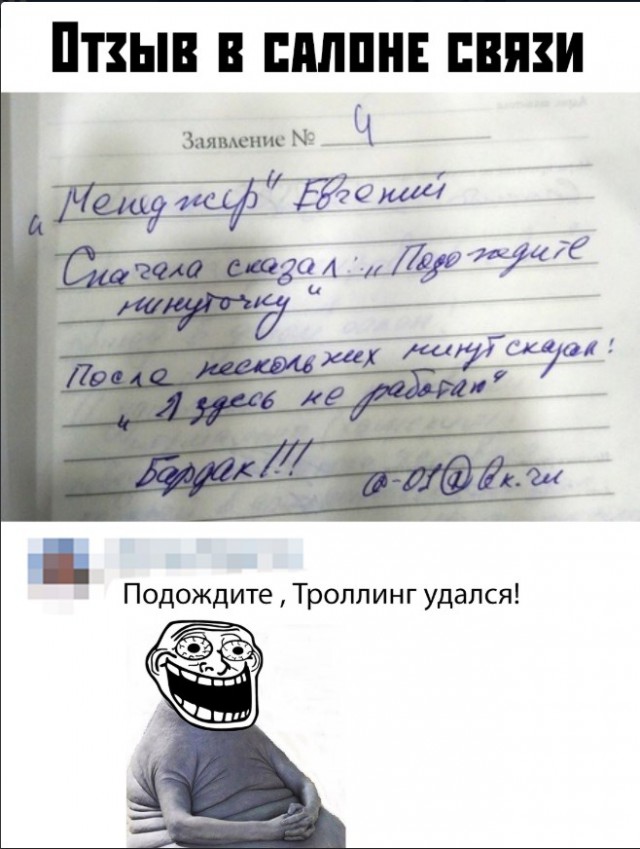 Отзыв в салоне связи
Заявление № 4
„Менеджер" Евгений
Сначала сказал: „Подождите
минуточку"
После нескольких минут сказал:
„Я здесь не работаю"
Бардак!!!
Подождите , Троллинг удался!